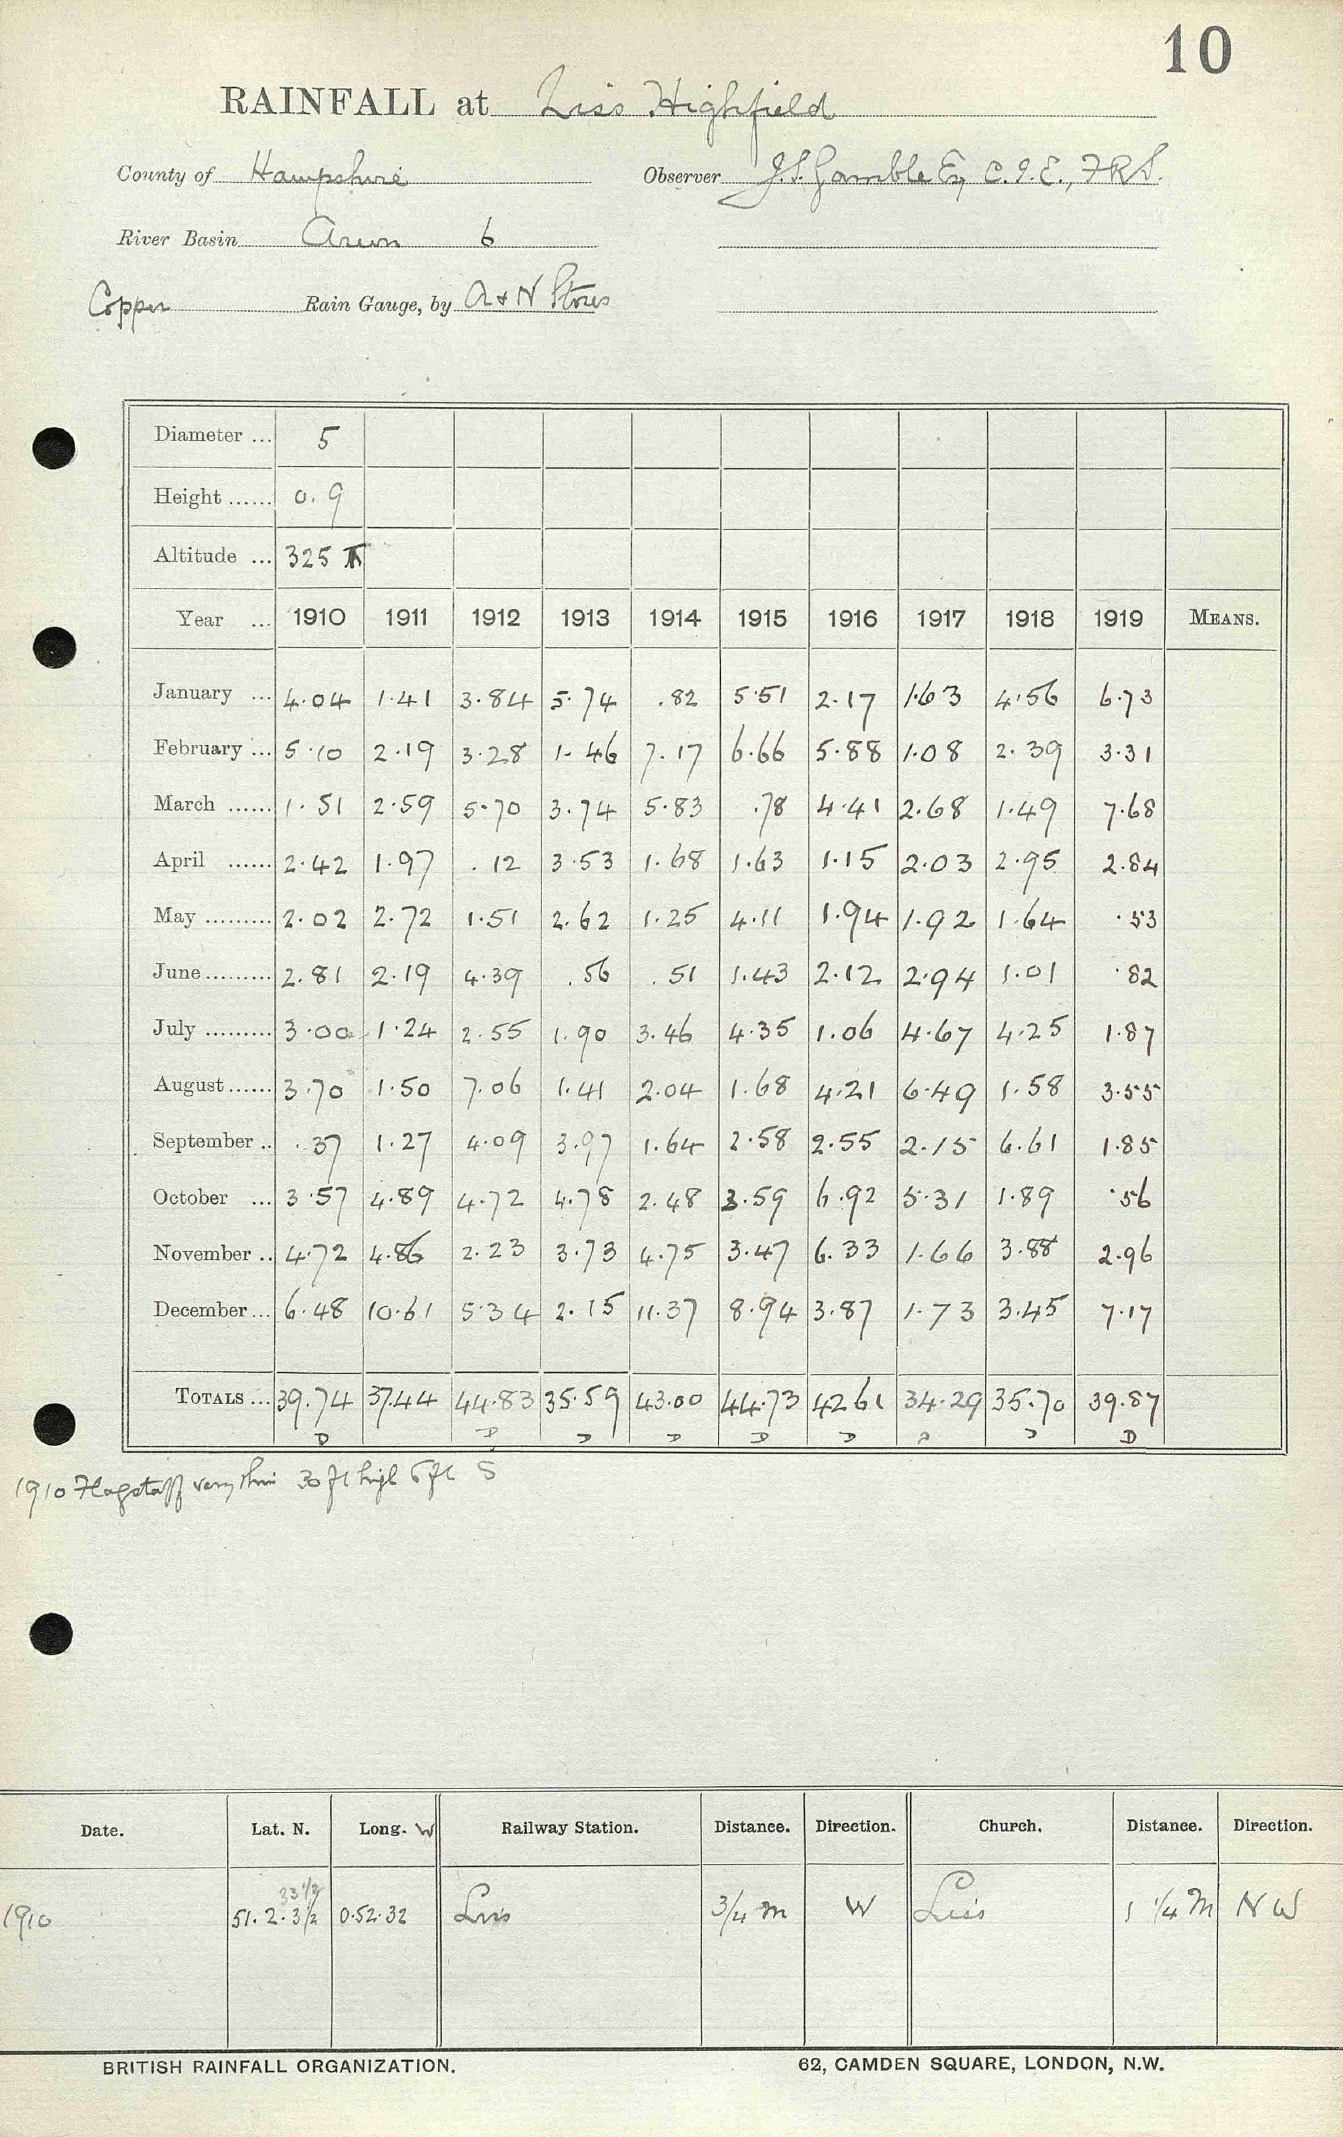 10
RAINFALL at Liss Highfield
County of Hampshire Observer J.S. Gamble Esq C.I.E., FRS.
River Basin Arun 6
Copper Rain Gauge, by A & N Stores
Diameter ... 5
Height ...... 0.9
Altitude ... 325
Year ... 1910 1911 1912 1913 1914 1915 1916 1917 1918 1919 MEANS.
January ... 4.04 1.41 3.84 5.74 .82 5.51 2.17 1.63 4.56 6.73
February ... 5.10 2.19 3.28 1.46 7.17 6.66 5.88 1.08 2.39 3.31
March ...... 1.51 2.59 5.70 3.74 5.83 .78 4.41 2.68 1.49 7.68
April ...... 2.42 1.97 .12 3.53 1.68 1.63 1.15 2.03 2.95 2.84
May ......... 2.02 2.72 1.51 2.62 1.25 4.11 1.94 1.92 1.64 .53
June ......... 2.81 2.19 4.39 .56 .51 1.43 2.12 2.94 1.01 .82
July ......... 3.00 1.24 2.55 1.90 3.46 4.35 1.06 4.67 4.25 1.87
August ...... 3.70 1.50 7.06 1.41 2.04 1.68 4.21 6.49 1.58 3.55
September .. .37 1.27 4.09 3.97 1.64 2.58 2.55 2.15 6.61 1.85
October ... 3.57 4.89 4.72 4.78 2.48 3.59 6.92 5.31 1.89 .56
November .. 4.72 4.86 2.23 3.73 4.75 3.47 6.33 1.66 3.88 2.96
December ... 6.48 10.61 5.34 2.15 11.37 8.94 3.87 1.73 3.45 7.17
TOTALS ... 39.74 37.44 44.83 35.59 43.00 44.73 42.61 34.29 35.70 39.87
D D D D D D D D D
1910 Flagstaff very thin 30 ft high 6 ft S
Date. Lat. N. Long. W Railway Station. Distance. Direction. Church. Distance. Direction.
33 1/2
1910 51.2.31/2 0.52.32 Liss 3/4 m W Liss 1 1/4 M NW
BRITISH RAINFALL ORGANIZATION. 62, CAMDEN SQUARE, LONDON, N.W.